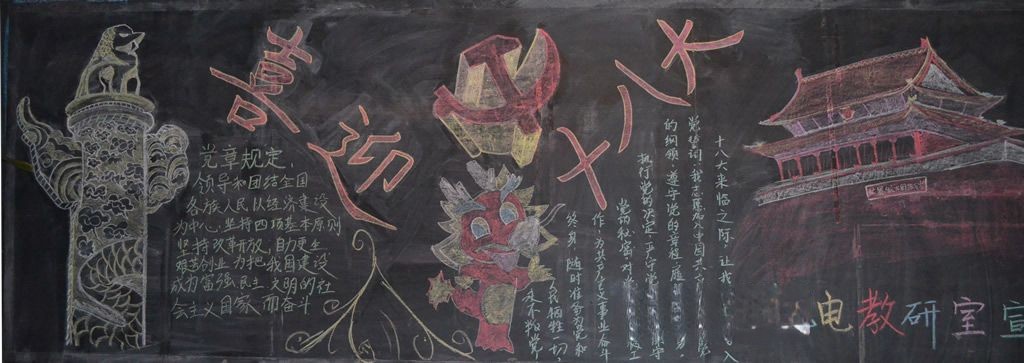 喜迎十八大
党章规定，
领导和团结全国
各族人民以经济建设
为中心，坚持四项基本原则
坚持改革开放，自力更生
艰苦创业，为把我国建设
成为富强民主文明的社
会主义国家而奋斗
十八大来临之际，让我
党誓词：我志愿加入中国共
的纲领，遵守党的章程，履
执行党的决定，严
党的秘密，对
作，为共产主义事业奋斗
终身，随时准备为党和
人民牺牲一切
永不叛党
电教研室宣